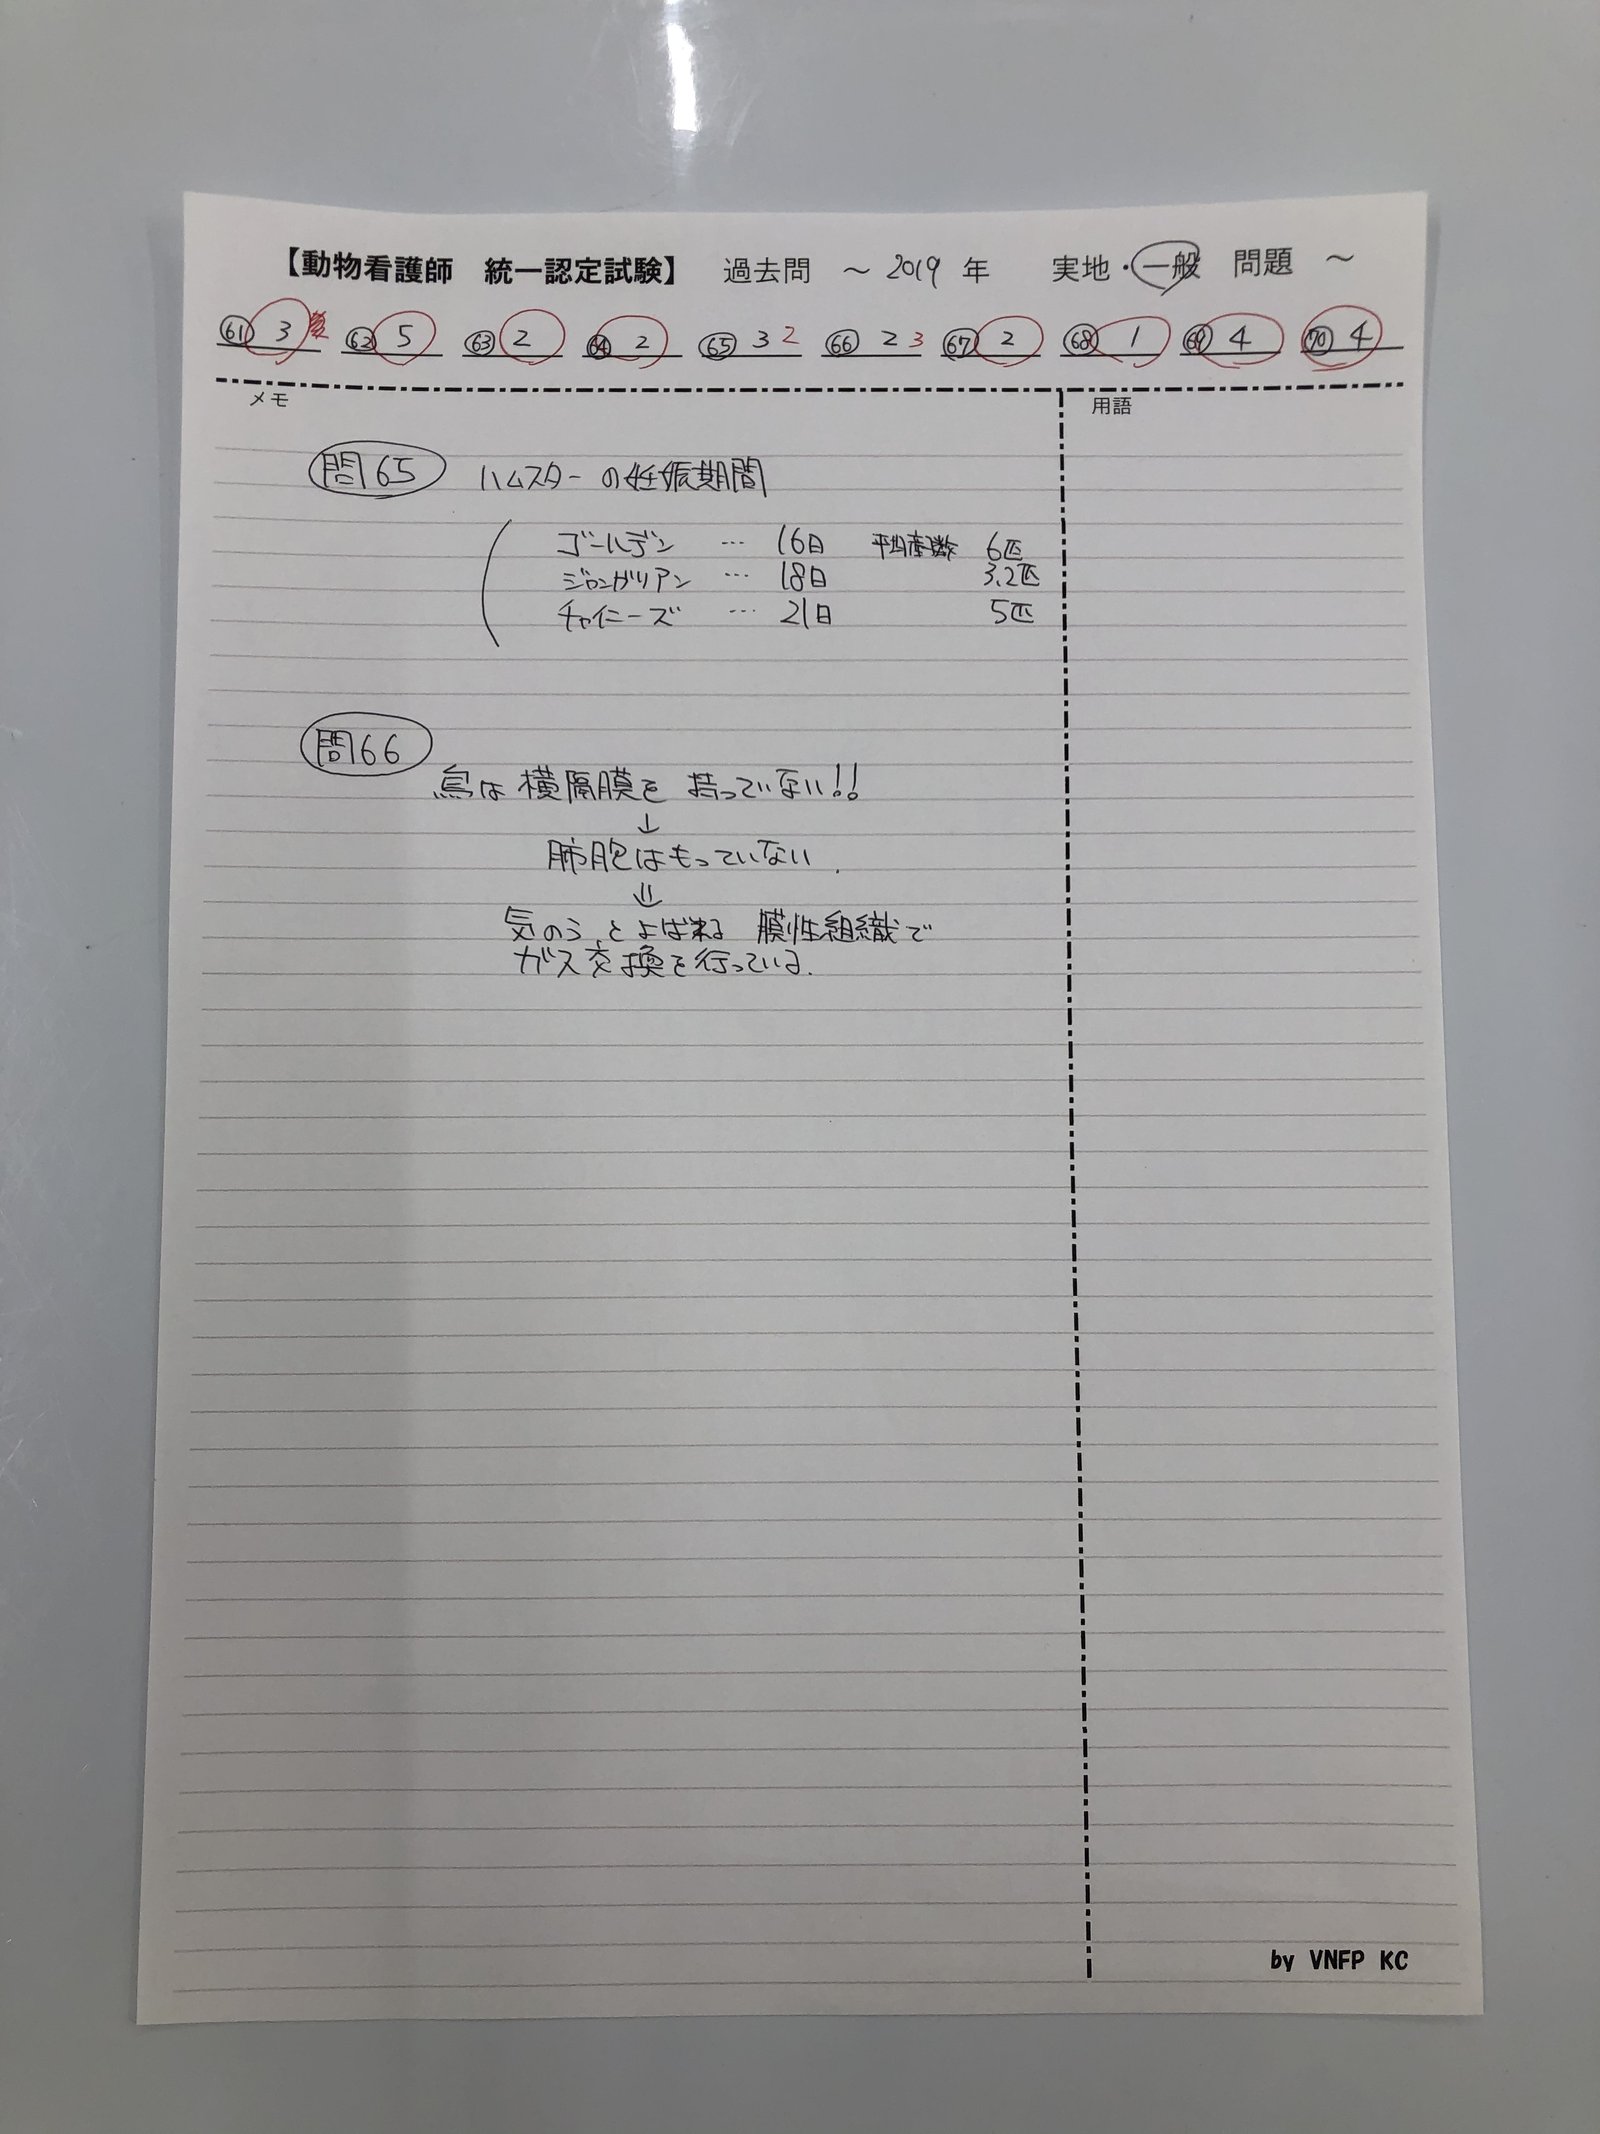 【動物看護師 統一認定試験】 過去問 ～ 2019 年 実地・一般 問題 ～
61 3 62 5 63 2 64 2 65 3 2 66 2 3 67 2 68 1 69 4 70 4
メモ 用語
問65 ハムスターの妊娠期間
ゴールデン … 16日 平均産数 6匹
ジャンガリアン … 18日 3.2匹
チャイニーズ … 21日 5匹
問66
鳥は横隔膜を持っていない!!
↓
肺胞はもっていない.
⇓
気のうとよばれる膜性組織で
ガス交換を行っている.
by VNFP KC